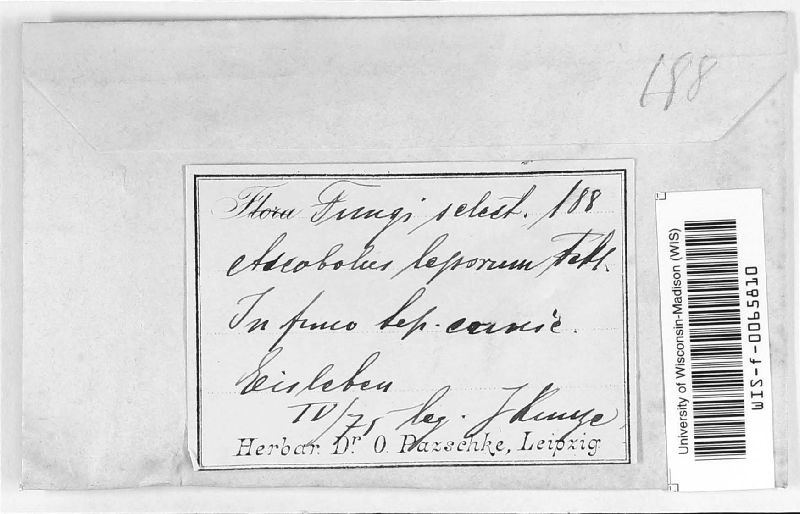 188
Flora Fungi select. 188
Ascobolus leporum Fckl.
In fimo lep. cunic.
Eisleben
IV/75 leg. J Kunze,
Herbar. Dr. O. Pazschke, Leipzig.
University of Wisconsin-Madison (WIS)
WIS-f-0065810